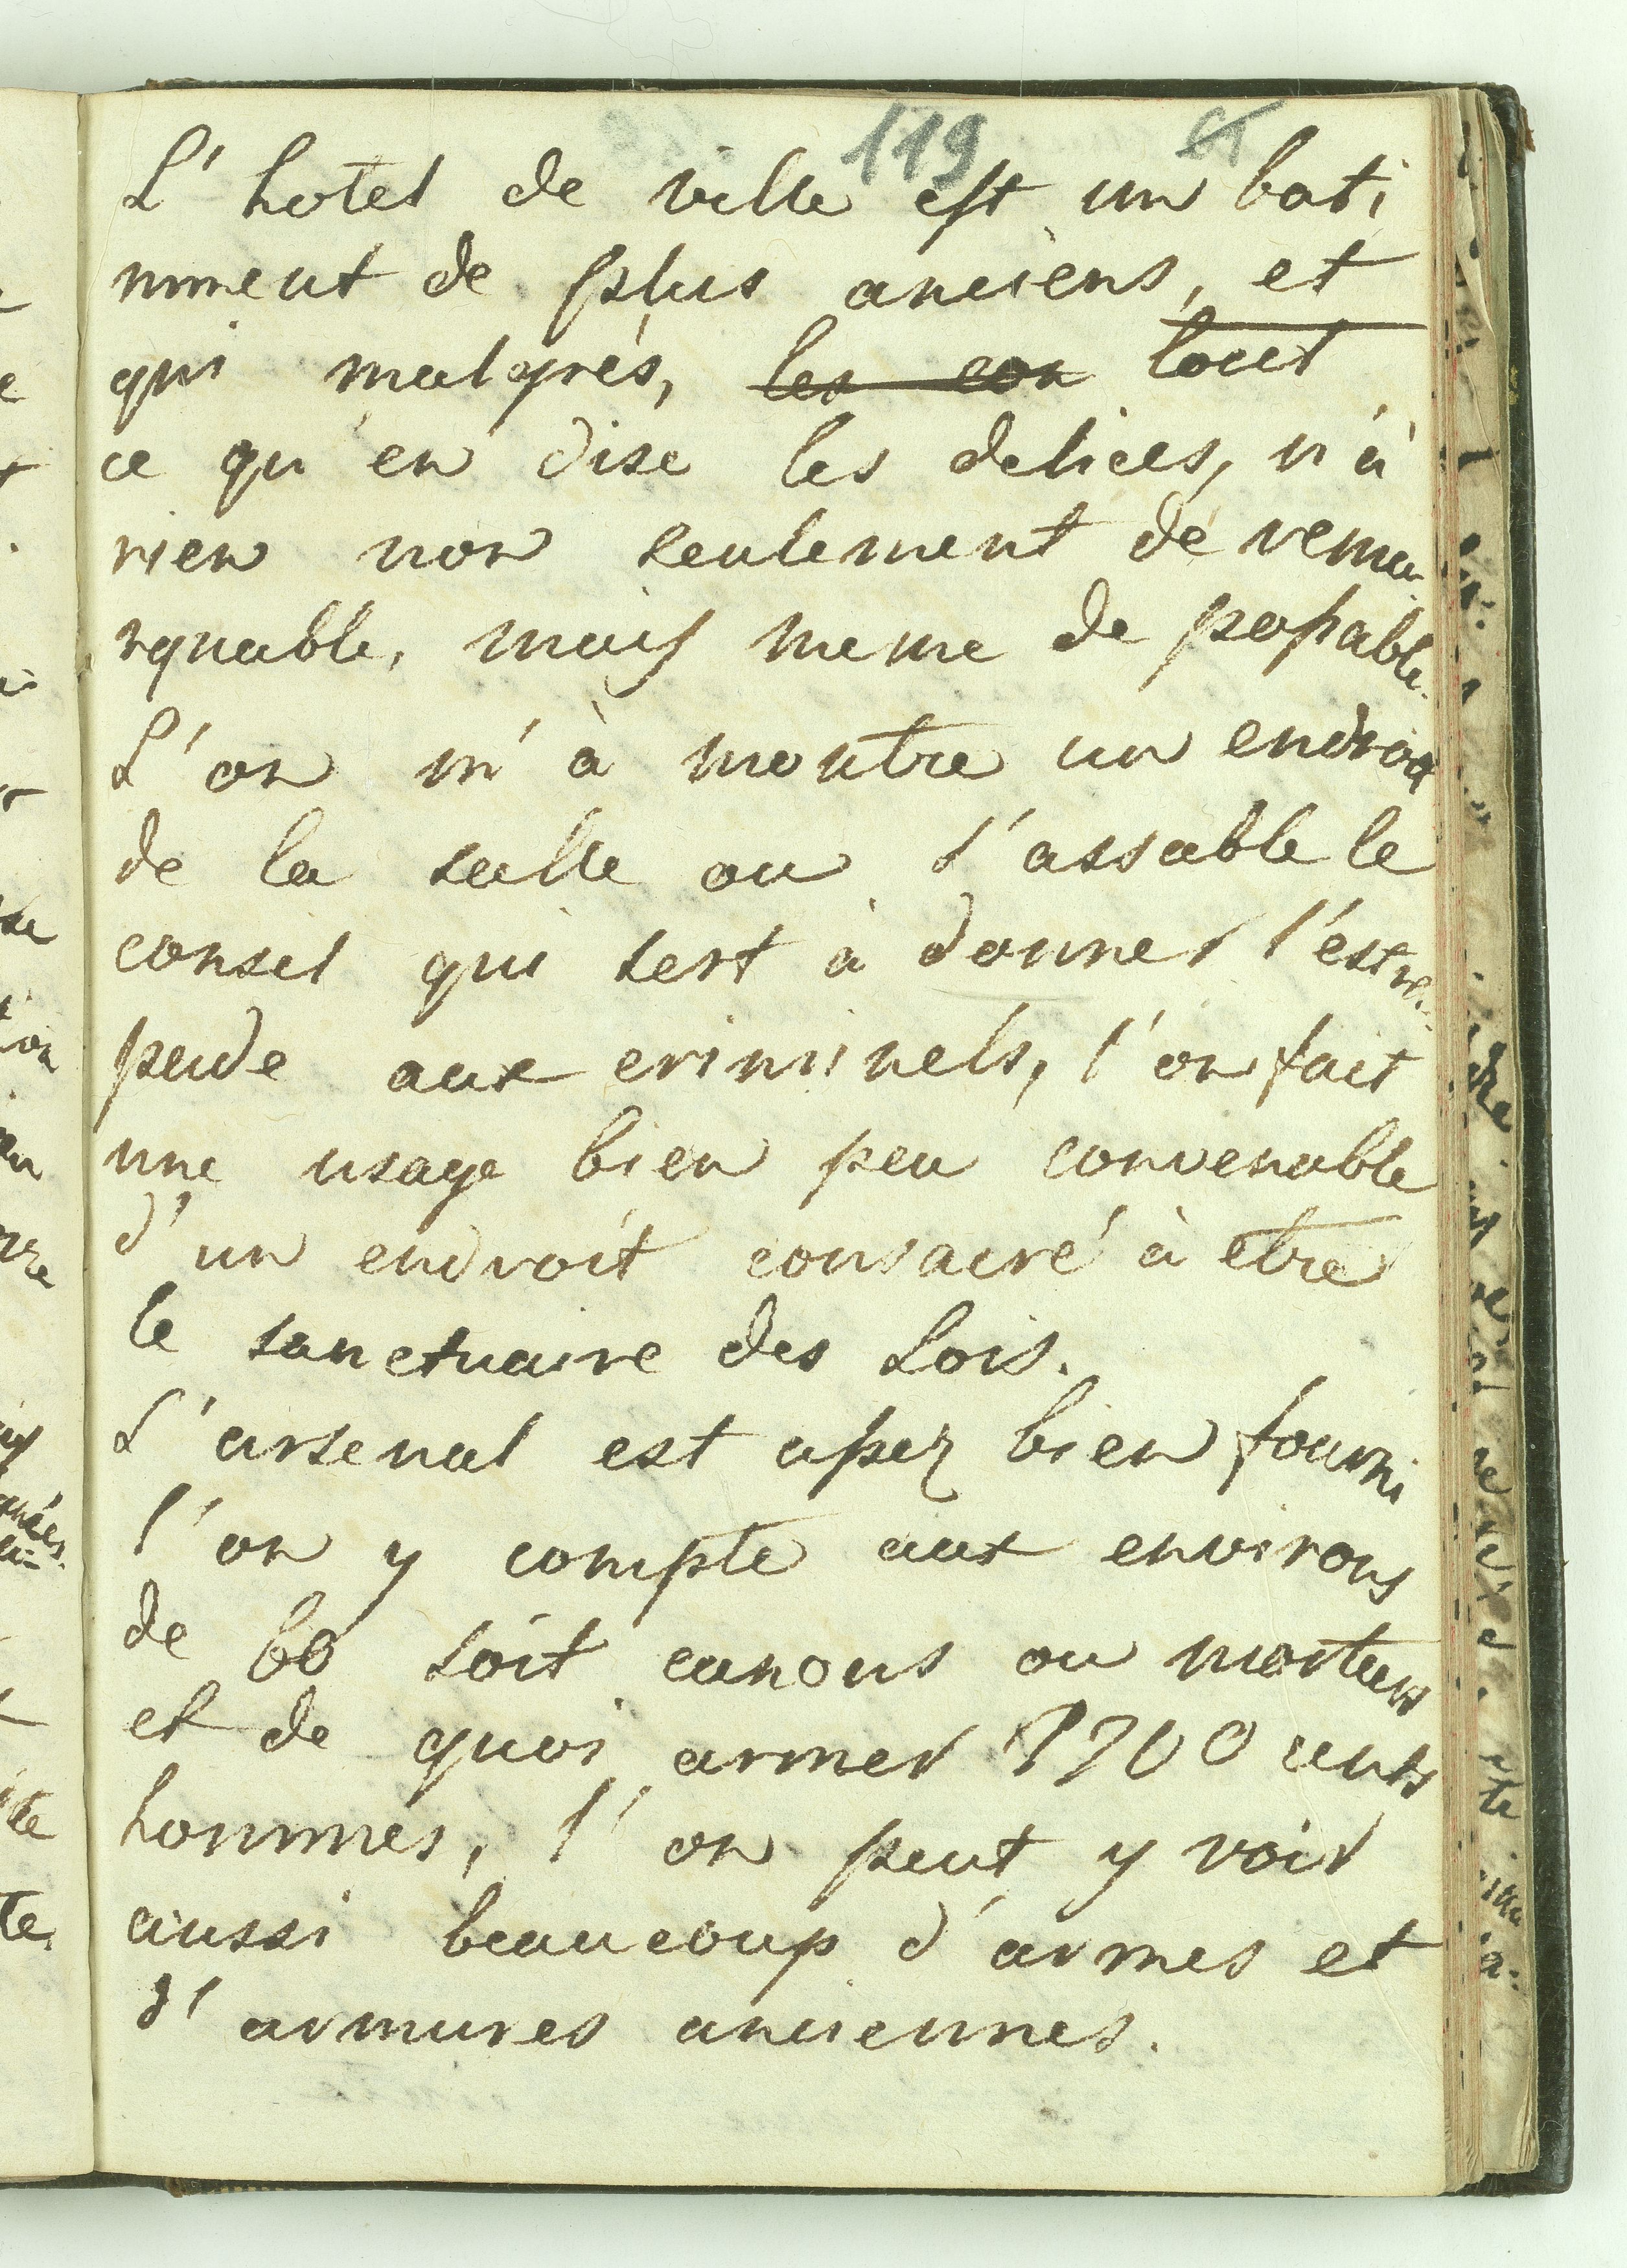 119
L' hotel de ville est un bati
mment de plus anciens, et
qui malgrés, les con tout
ce qu'en dise les delices, n'à
rien non seulement de remar
rquable, mais meme de passable.
L'on m'à montre un endroit
de la salle ou s'assable le
conseil qui sert à donner l'estra
pade aux criminels, l'on fait
une usage bien peu convenable
d'un endroit consacré à etre
le sanctuaire des Lois.
L'arsenal est assez bien fourni
l'on y compte aux environs
de 60 soit canons ou mortiers
et de quoi armer cents
hommes, l'on peut y voir
aussi beaucoup d'armes et
d'armures anciennes.